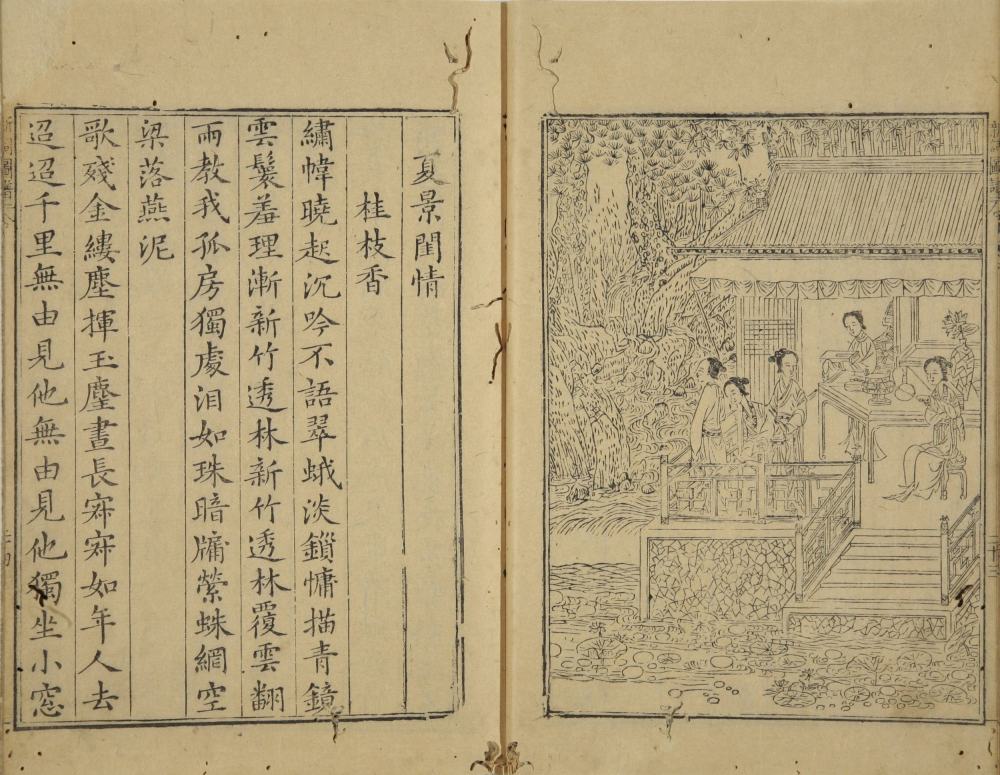 夏景閨情
桂枝香
繡幃曉起沉吟不語翠蛾淡鎖慵描青鏡
雲鬟羞理漸新竹透林新竹透林覆雲翻
雨教我孤房獨處泪如珠暗牖縈蛛網空
梁落燕泥
歌殘金縷塵揮玉麈晝長寂寂如年人去
迢迢千里無由見他無由見他獨坐小窓